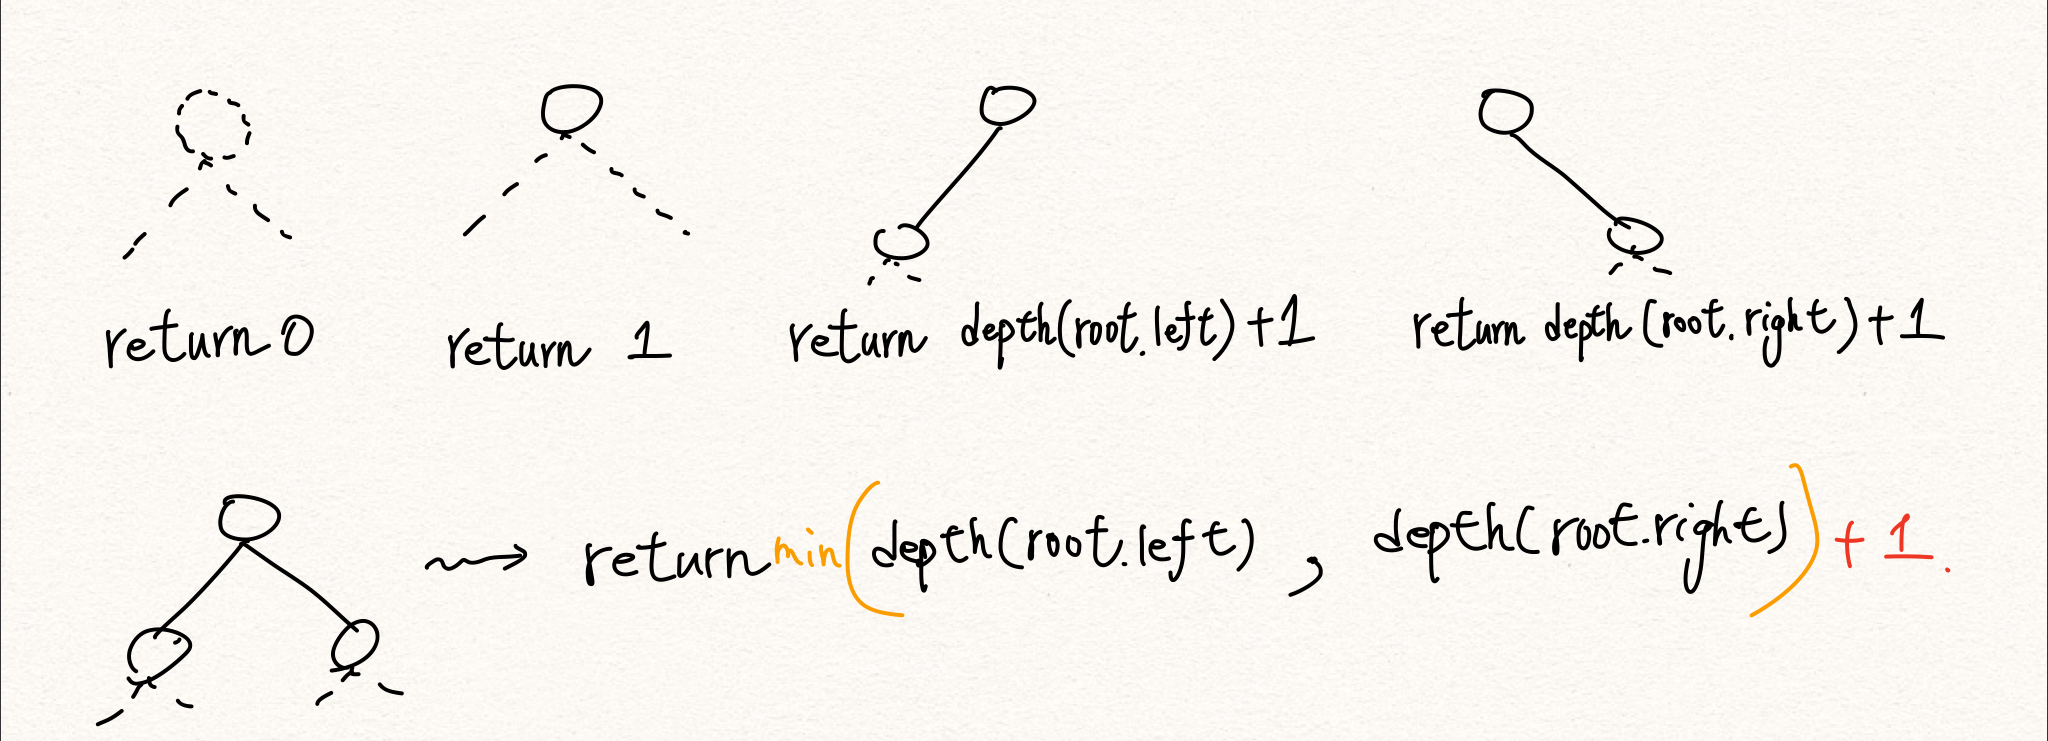 return 0
return 1
return depth(root.left)+1
return depth(root.right)+1
return min(depth(root.left), depth(root.right))+1.